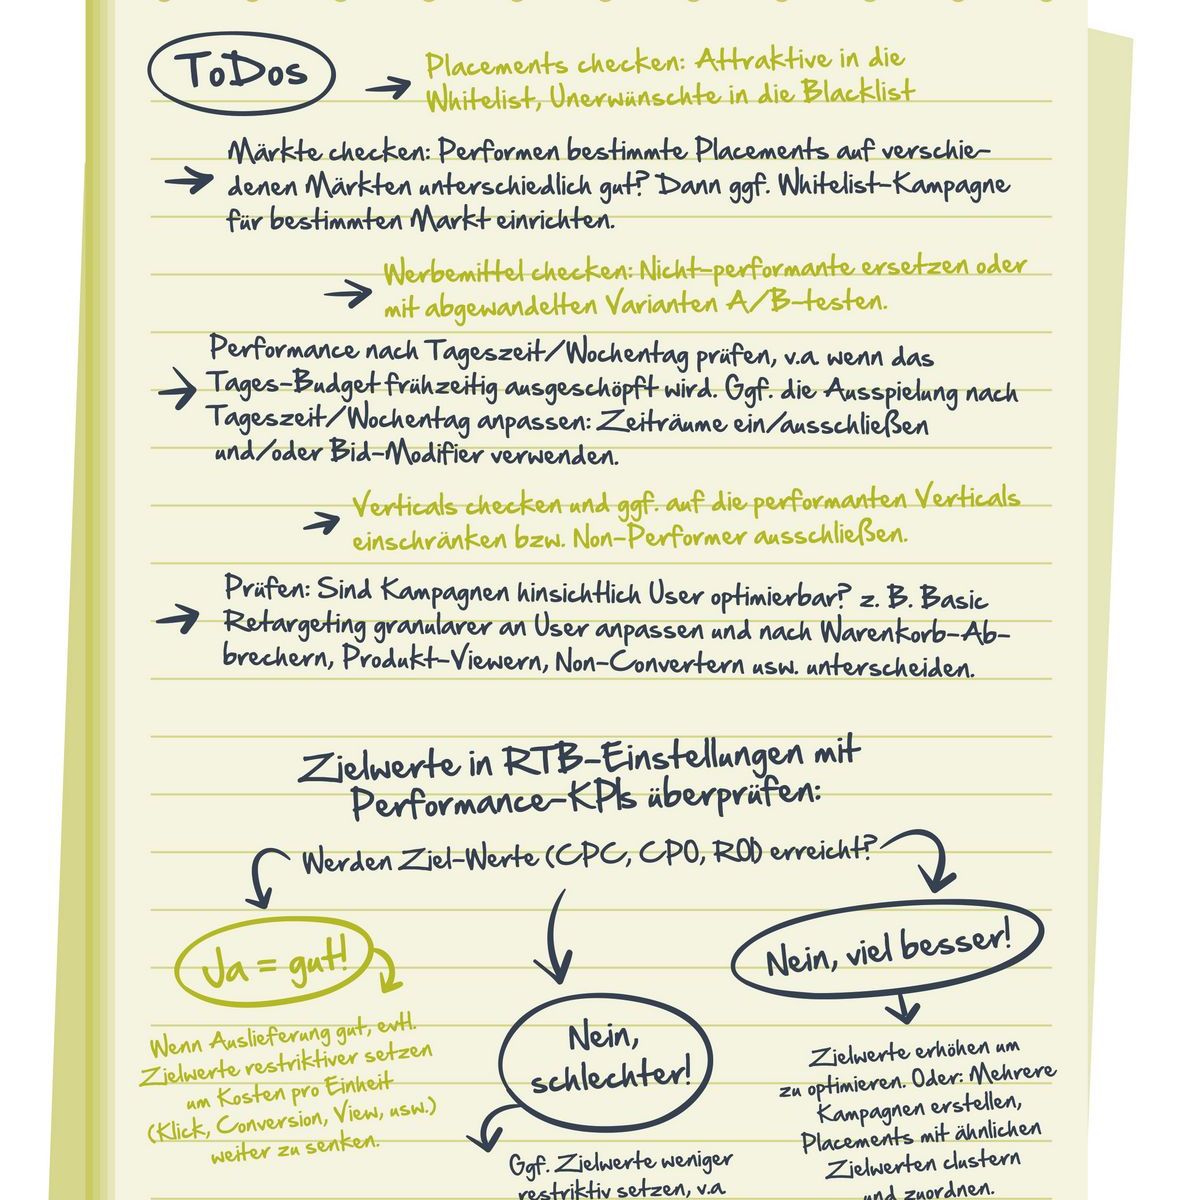 ToDos
Placements checken: Attraktive in die
Whitelist, Unerwünschte in die Blacklist
Märkte checken: Performen bestimmte Placements auf verschie-
denen Märkten unterschiedlich gut? Dann ggf. Whitelist-Kampagne
für bestimmten Markt einrichten.
Werbemittel checken: Nicht-performante ersetzen oder
mit abgewandelten Varianten A/B-testen.
Performance nach Tageszeit/Wochentag prüfen, v.a. wenn das
Tages-Budget frühzeitig ausgeschöpft wird. Ggf. die Ausspielung nach
Tageszeit/Wochentag anpassen: Zeiträume ein/ausschließen
und/oder Bid-Modifier verwenden.
Verticals checken und ggf. auf die performanten Verticals
einschränken bzw. Non-Performer ausschließen.
Prüfen: Sind Kampagnen hinsichtlich User optimierbar? z. B. Basic
Retargeting granularer an User anpassen und nach Warenkorb-Ab-
brechern, Produkt-Viewern, Non-Convertern usw. unterscheiden.
Zielwerte in RTB-Einstellungen mit
Performance-KPIs überprüfen:
Werden Ziel-Werte (CPC, CPO, ROI) erreicht?
Ja = gut!
Wenn Auslieferung gut, evtl.
Zielwerte restriktiver setzen
um Kosten pro Einheit
(Klick, Conversion, View, usw.)
weiter zu senken.
Nein,
schlechter!
Ggf. Zielwerte weniger
restriktiv setzen, v.a
Nein, viel besser!
Zielwerte erhöhen um
zu optimieren. Oder: Mehrere
Kampagnen erstellen,
Placements mit ähnlichen
Zielwerten clustern
und zuordnen.